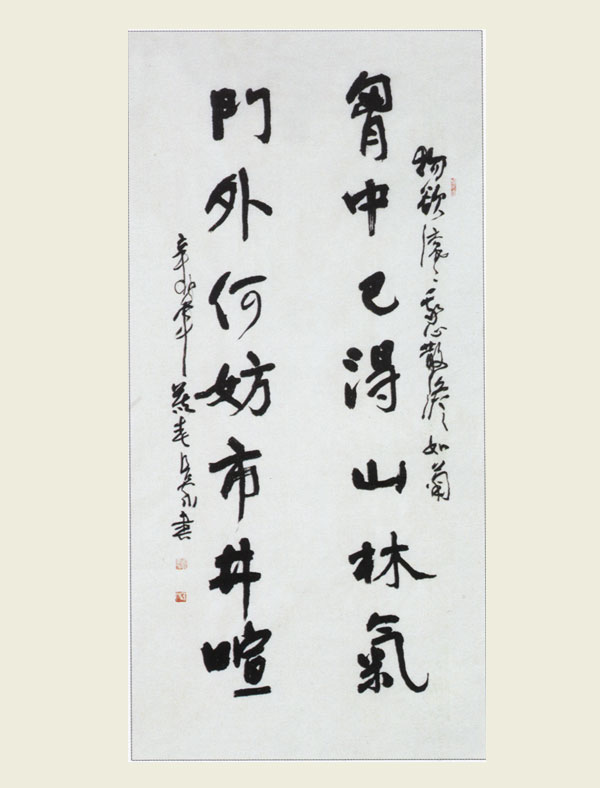 物欲滚滚心散淡如菊
胷中已得山林氣
門外何妨市井喧
辛卯書